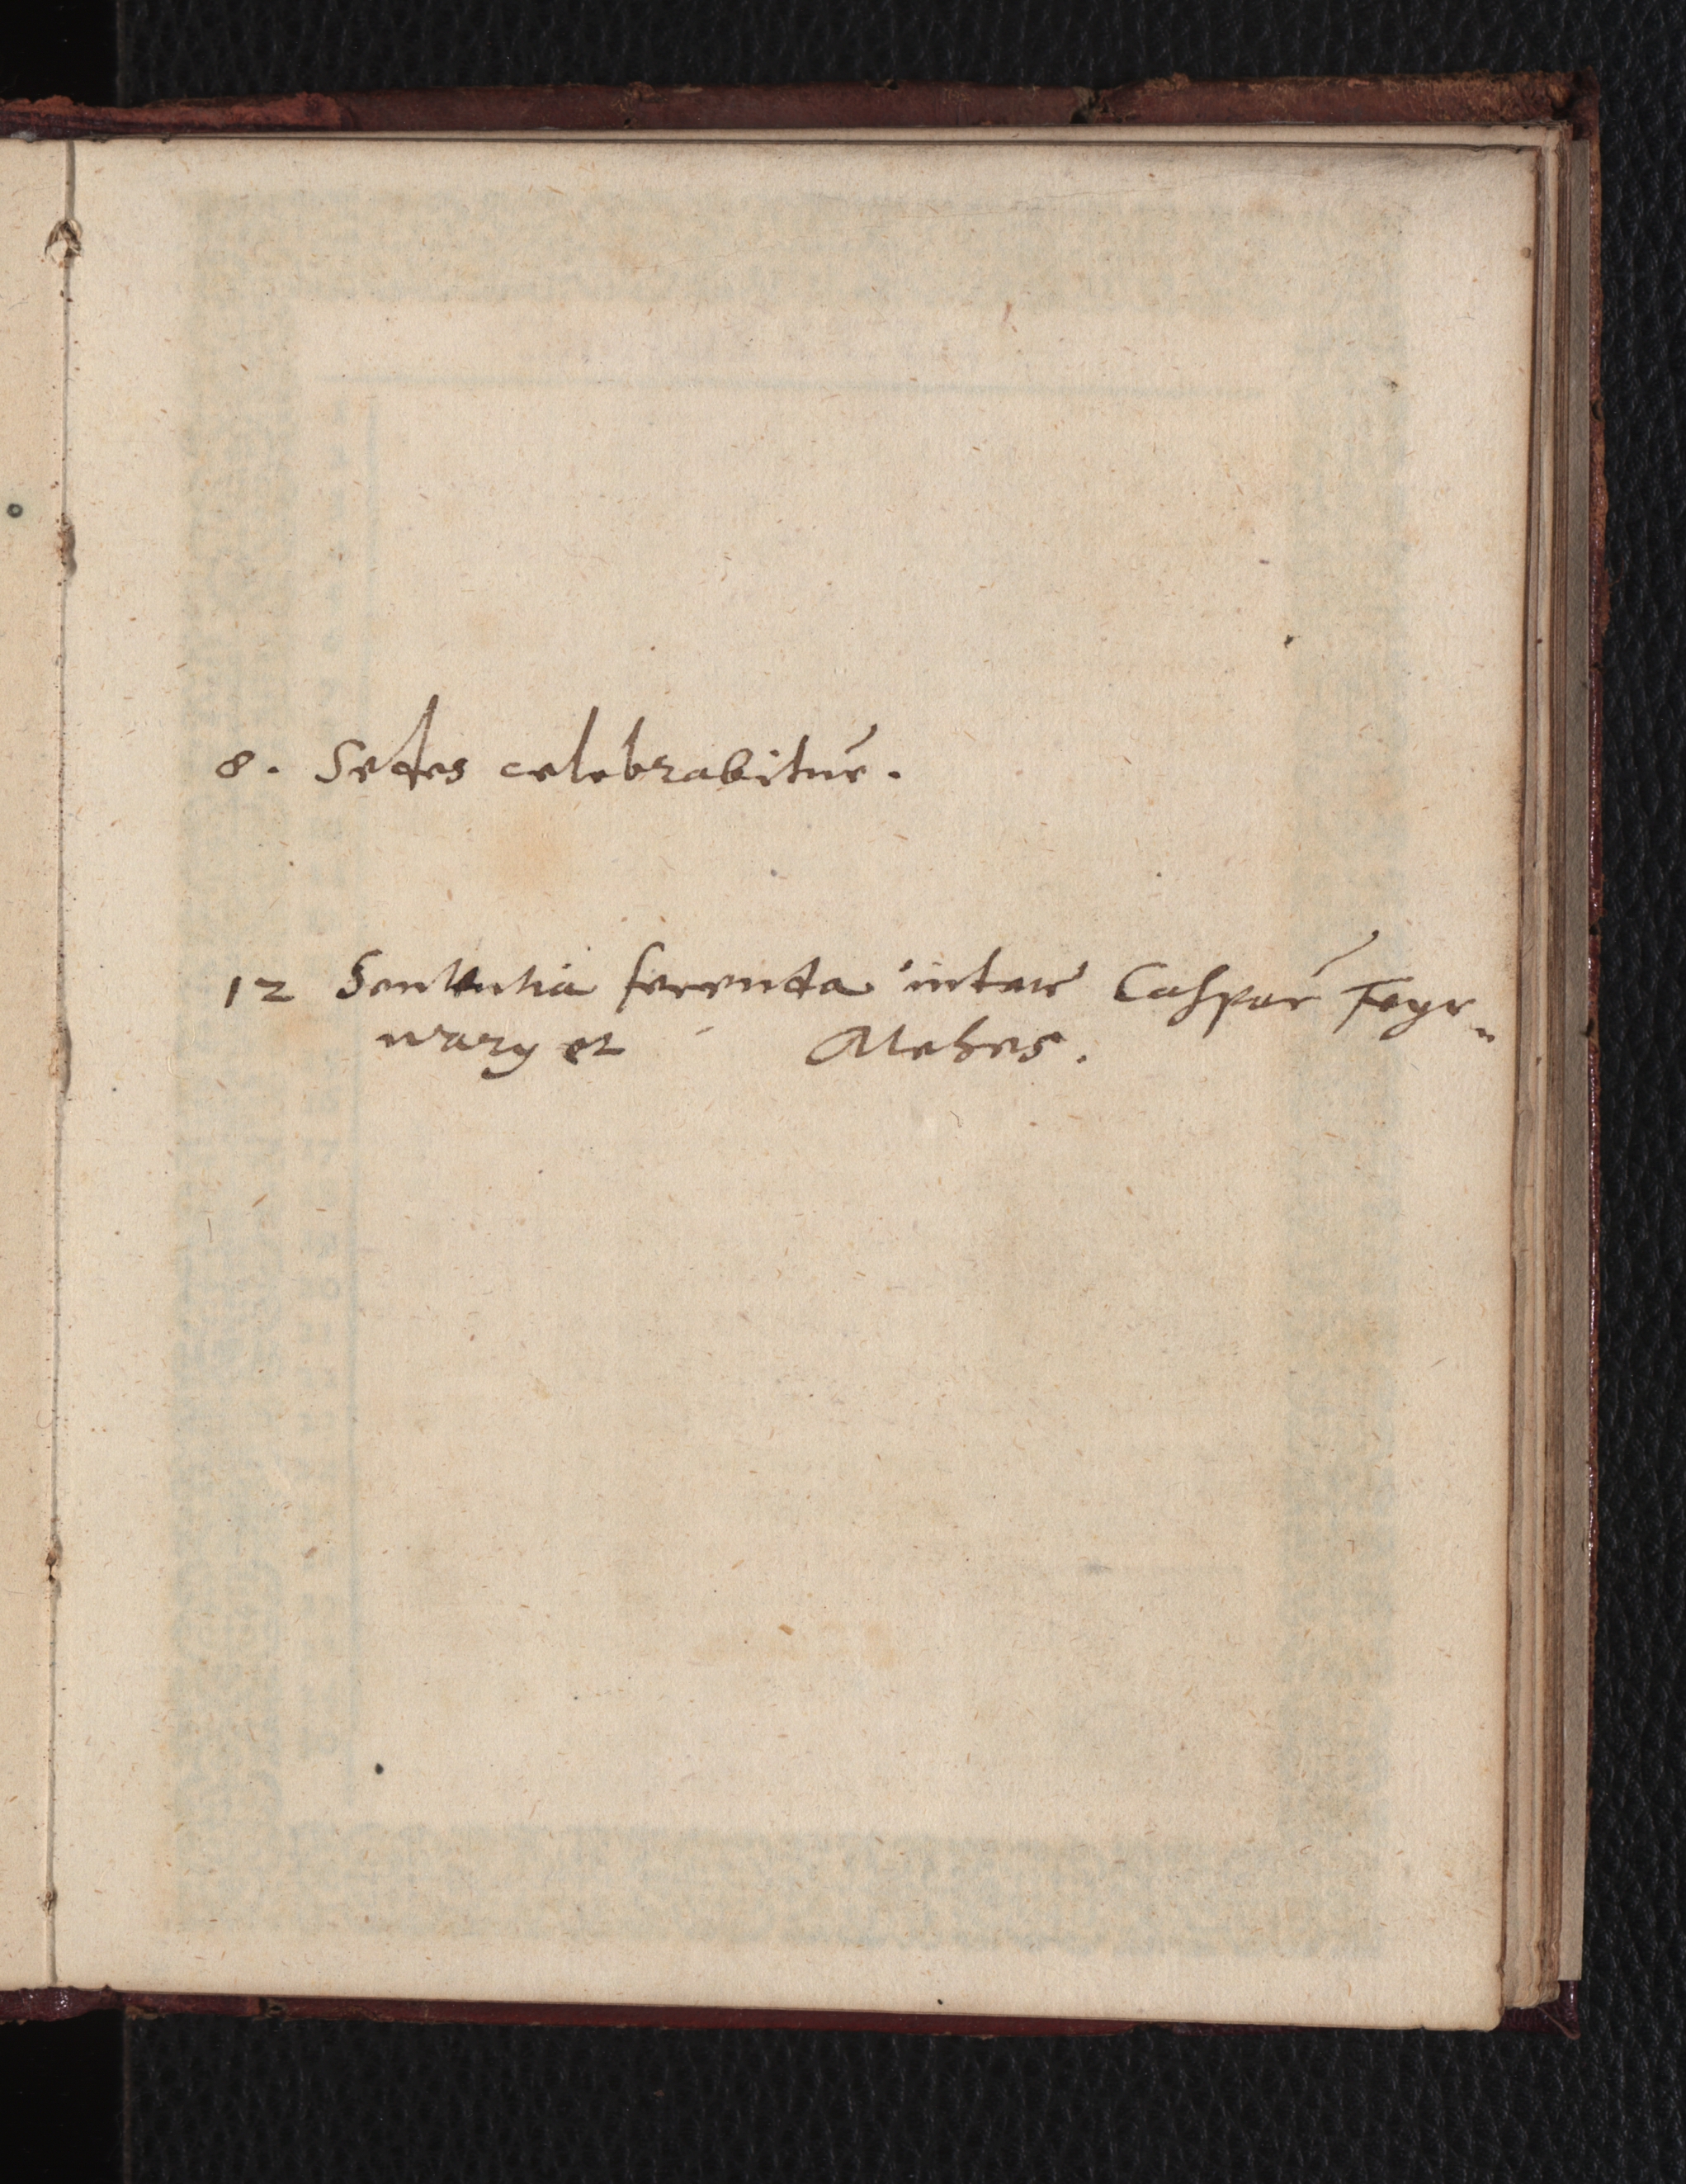 8. Sedes celebrabitur.
12 Sententia ferenda inter Caspar Feyr„
wary et Mehes.